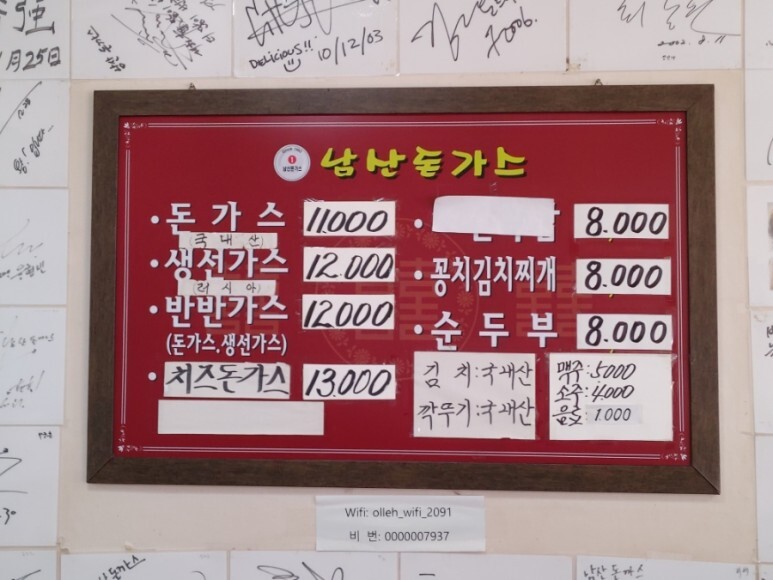 25日
Delicious!! 10/12/03
2006.
2002. 2. 11
남산돈가스
• 돈가스 11.000
(국내산)
• 생선가스 12.000
(러시아)
• 반반가스 12.000
(돈가스.생선가스)
• 치즈돈가스 13.000
• 8.000
• 꽁치김치찌개 8.000
• 순두부 8.000
김 치:국내산
깍뚜기:국내산
맥주:5000
소주:4,000
음료:1.000
Wifi: olleh_wifi_2091
비 번: 0000007937
남산돈가스